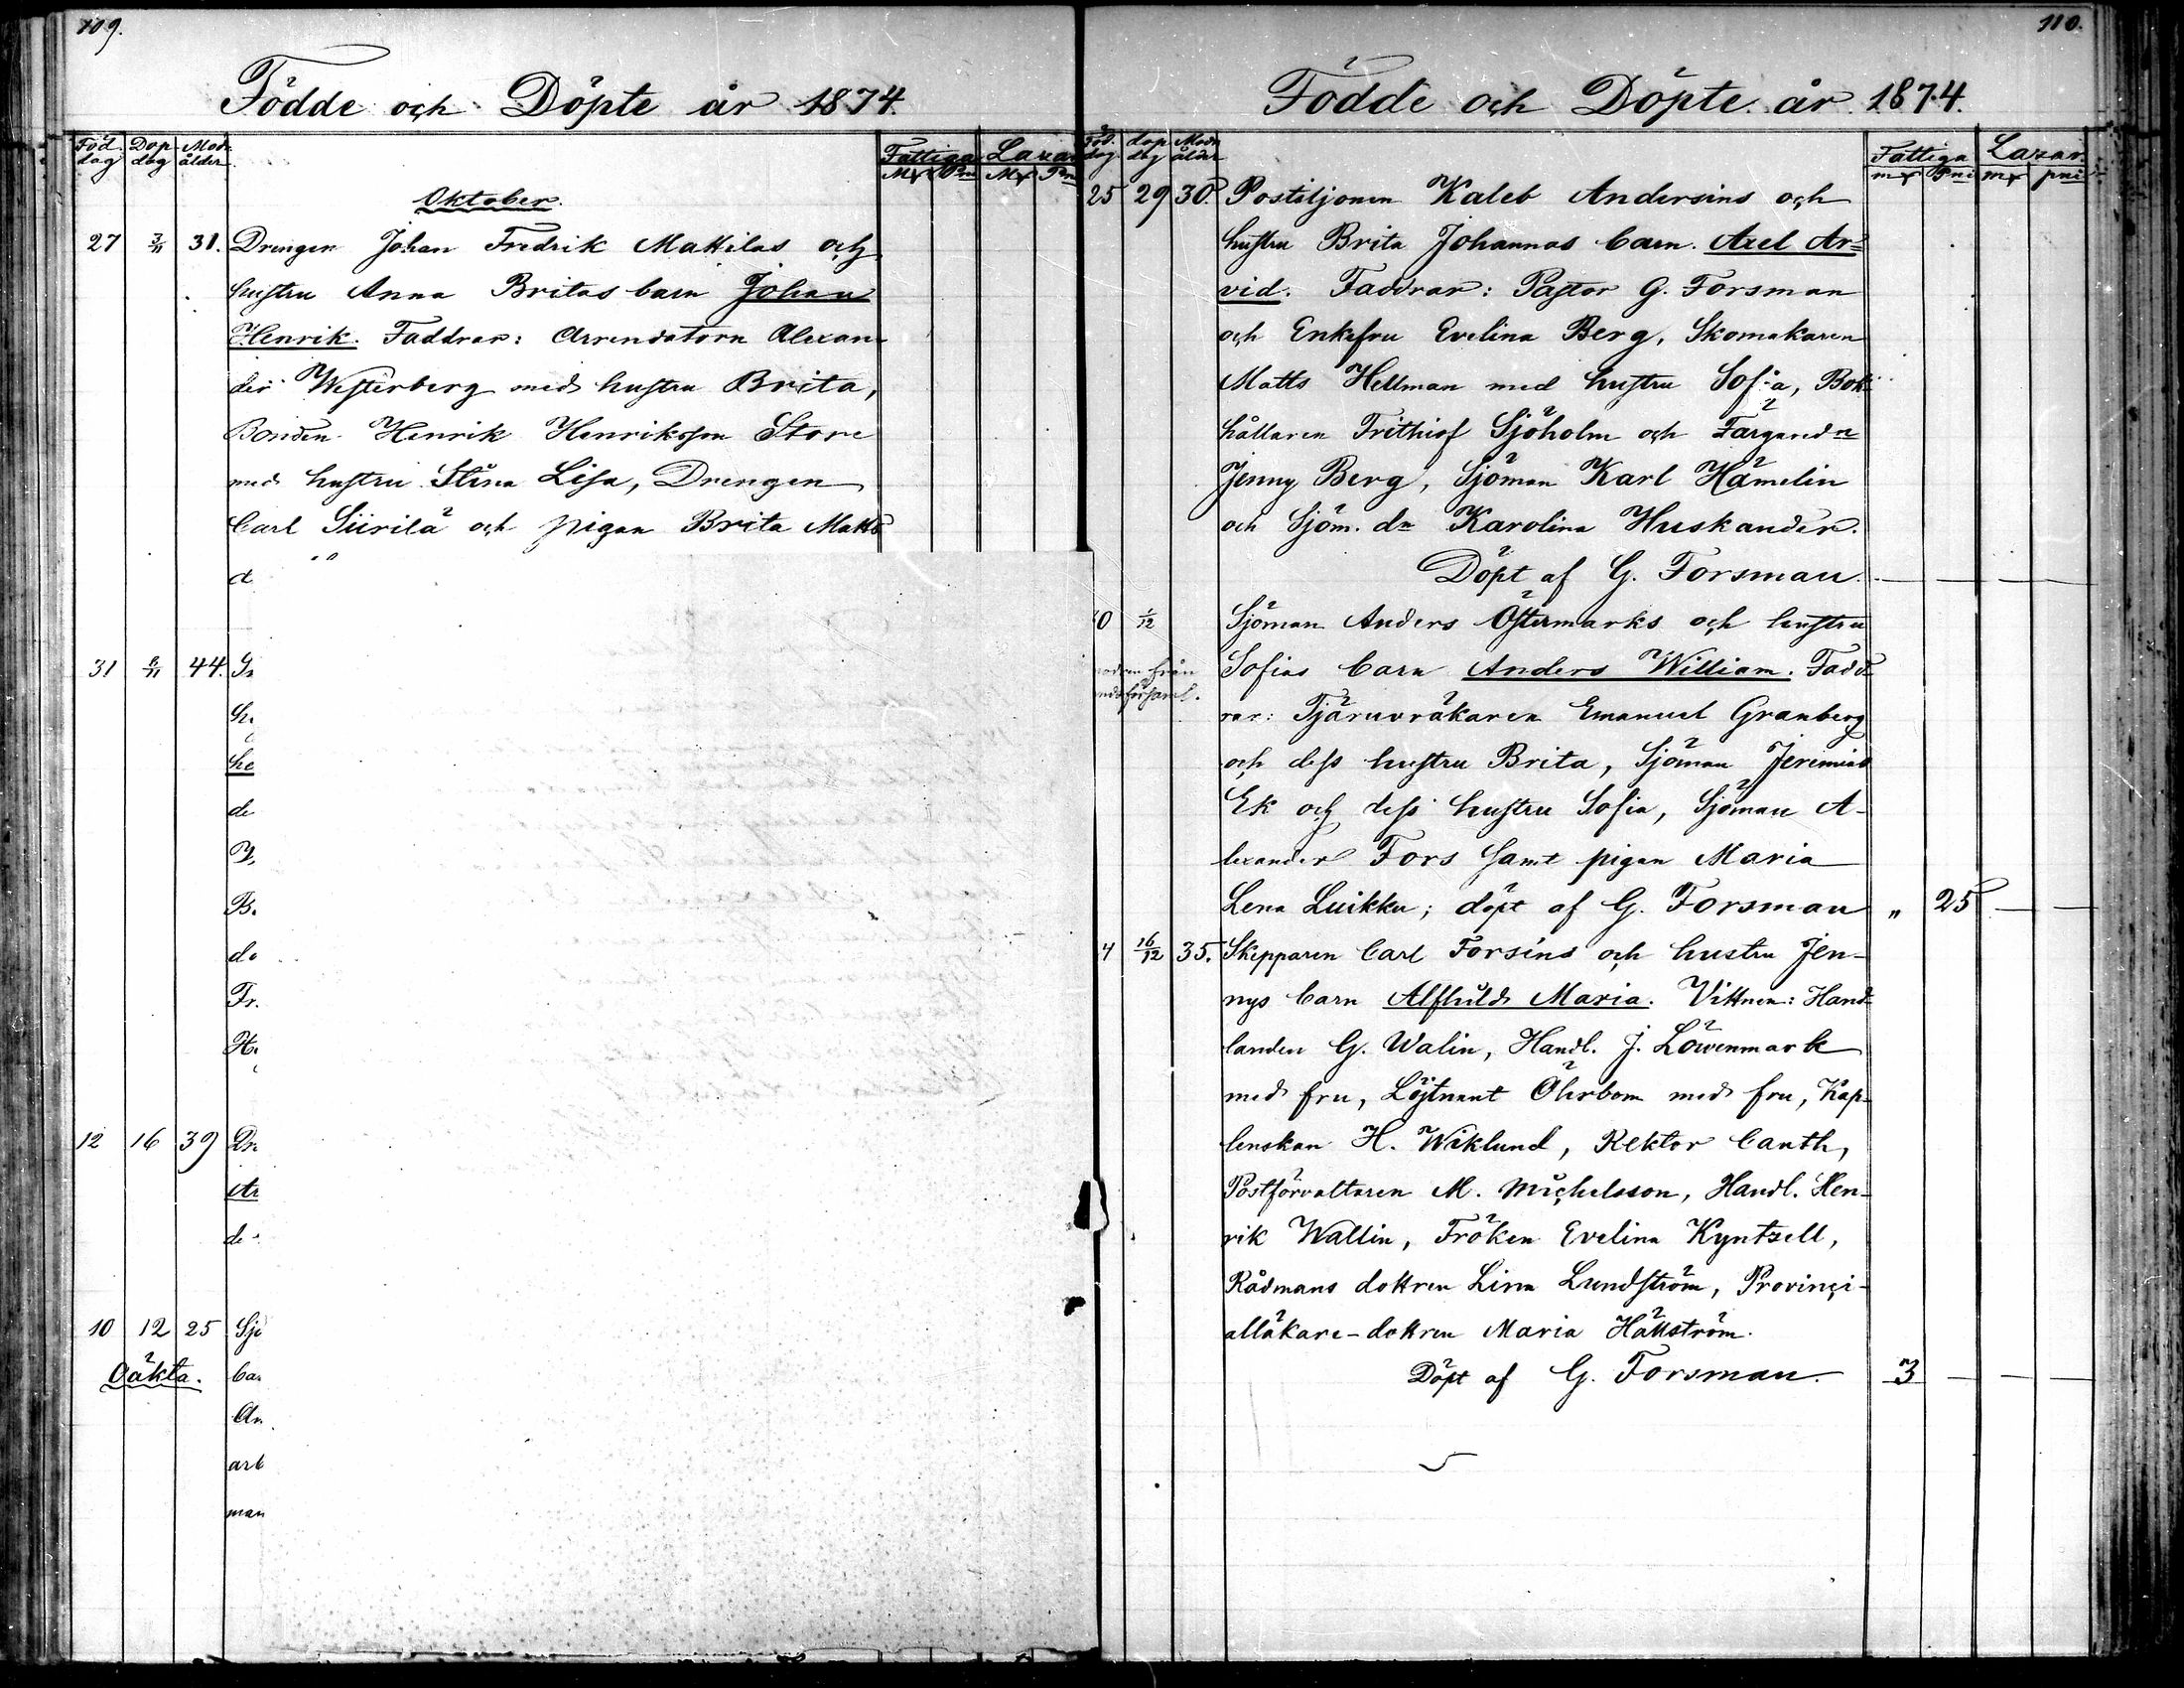 109.
Födde och Döpte år 1874.
Föd. dag Dop dag Mod. ålder Fattiga Lazar.
Mk Pni Mk Pni
Oktober.
27 3/11 31. Drengen Johan Fredrik Mattilas och
hustru Anna Britas barn Johan
Henrik. Faddrar: Arrendatorn Alexan
der Westerberg med hustru Brita,
Bonden Henrik Henriksson Store
med hustru Stina Lisa, Drengen
Carl Siirilä och pigan Brita Matts
d
31 8/11 44.
he
de
B.
de
Fr.
12 16 39 Dr
Ar
de
10 12 25 Sjö
Oäkta. bar
An
arb
man
110.
Födde och Döpte år 1874.
Föd. dag dop dag Modr ålder Fattiga Lazar.
mk pni mk pni
25 29 30. Postiljonen Kaleb Andersins och
hustru Brita Johannas barn. Axel Ar=
vid. Faddrar: Pastor G. Forsman
och Enkefru Evelina Berg, Skomakaren
Matts Hellman med hustru Sofia, Bok
hållaren Frithiof Sjöholm och Färgaredn
Jenny Berg, Sjöman Karl Hämelin
och Sjöm. dn Karolina Huskander.
Döpt af G. Forsman.
0 1/12 Sjöman Anders Östermarks och hustru
Sofias barn Anders William. Fadd=
rar: Tjäruvräkaren Emanuel Granberg
och dess hustru Brita, Sjöman Jeremias
Ek och dess hustru Sofia, Sjöman A-
lexander Fors samt pigan Maria
Lena Luikku; döpt af G. Forsman " 25 — —
4 16/12 35. Skepparen Carl Forséns och hustru Jen-
nys barn Alfhild Maria. Vittnen: Hand=
landen G. Walin, Handl. J. Löwenmark
med fru, Löjtnant Öhrbom med fru, Kap-
lenskan H. Wiklund, Rektor Canth,
Postförvaltaren M. Michelsson, Handl. Hen-
rik Wallin, Fröken Evelina Kyntzell,
Rådmans dottren Lina Lundström, Provinci-
alläkare-dottren Maria Hällström.
Döpt af G. Forsman. 3 — — —